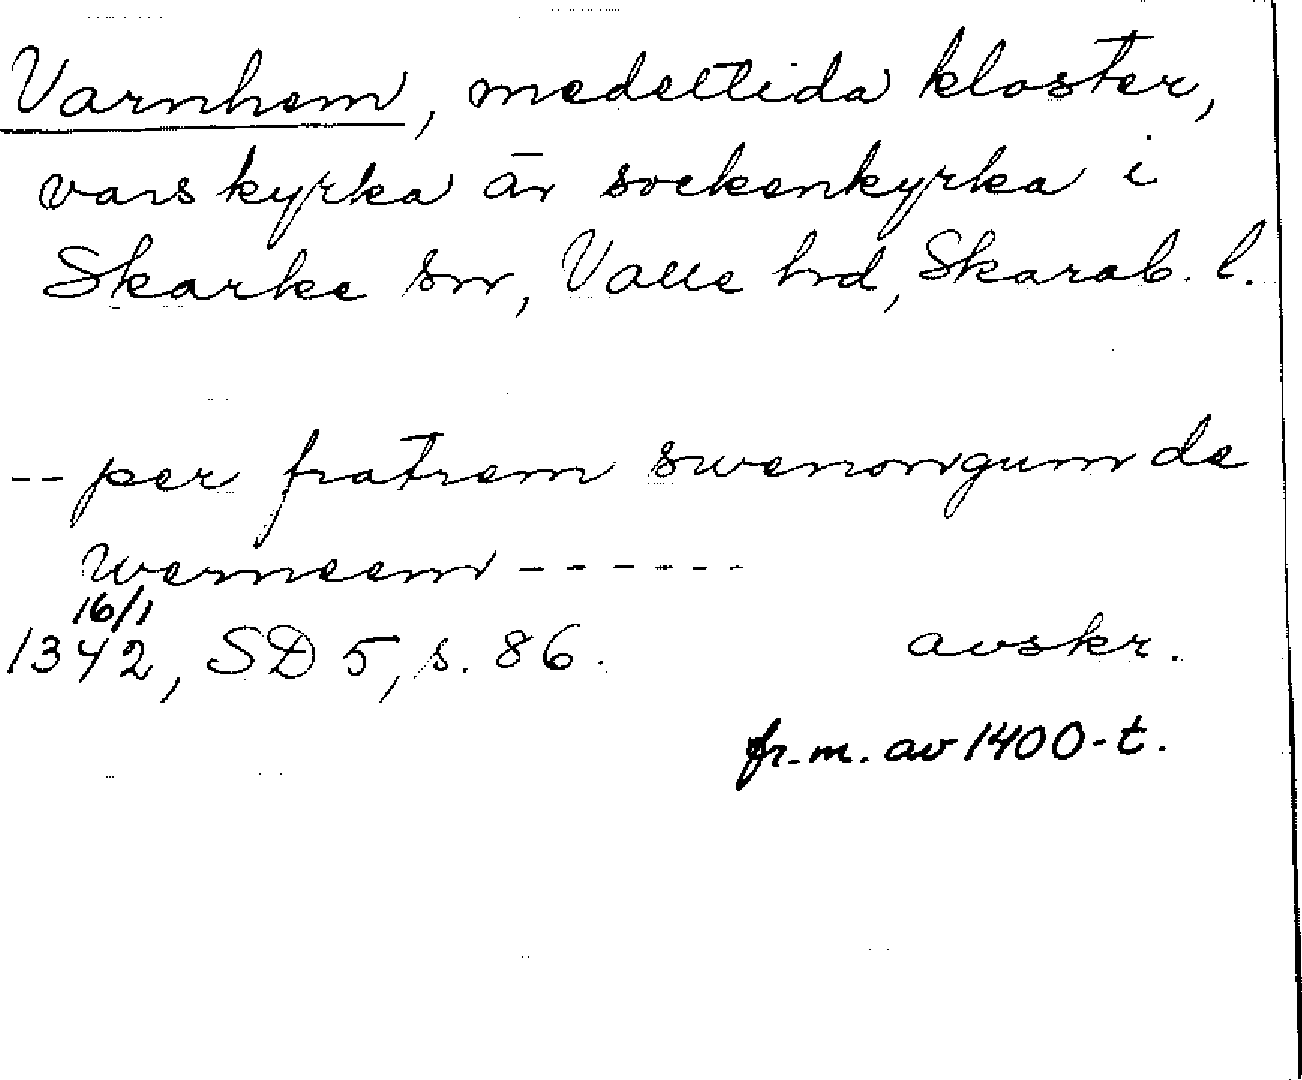 Varnhem, medeltida kloster,
vars kyrka är sockenkyrka i
Skarke sn, Valle hd, Skarab. l.
-- per fratrem swenonngum de
werneem ------
16/1
1342, SD 5, s. 86. avskr.
fr. m. av 1400-t.